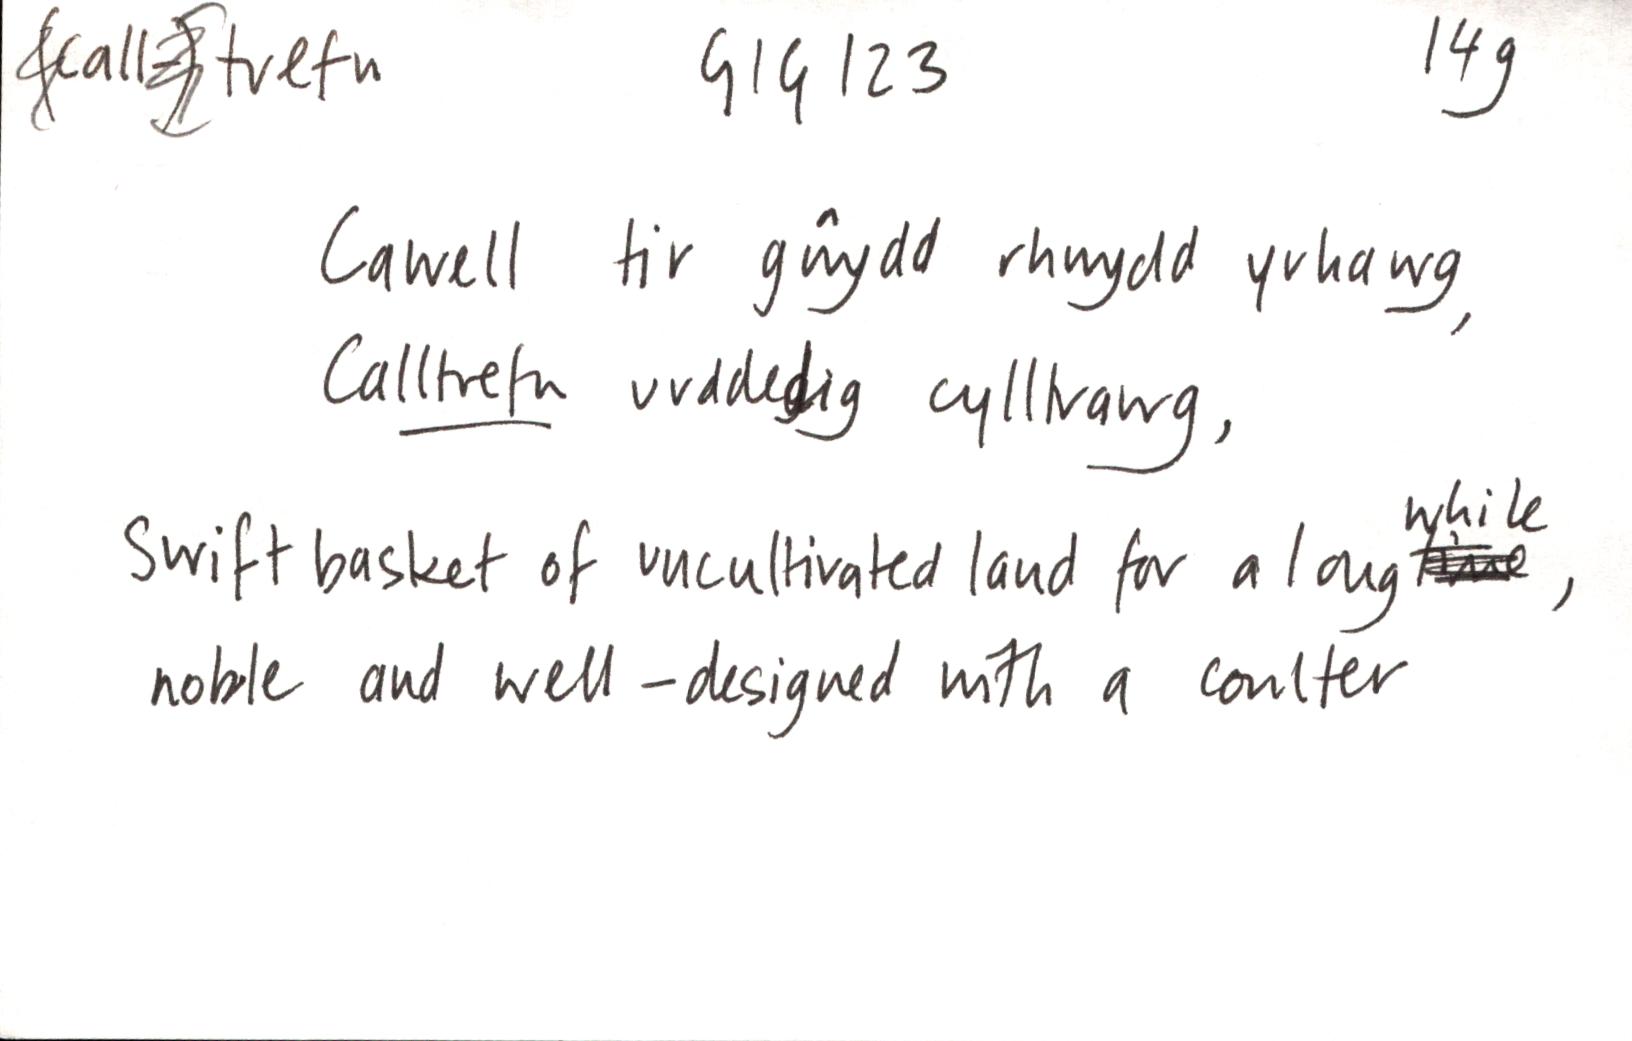 calltrefn GIG 123 14g
Cawell tir gŵydd rhwydd yrhawg,
Calltrefn urddedig cylltrawg,
Swift basket of uncultivated land for a long while,
noble and well-designed with a coulter